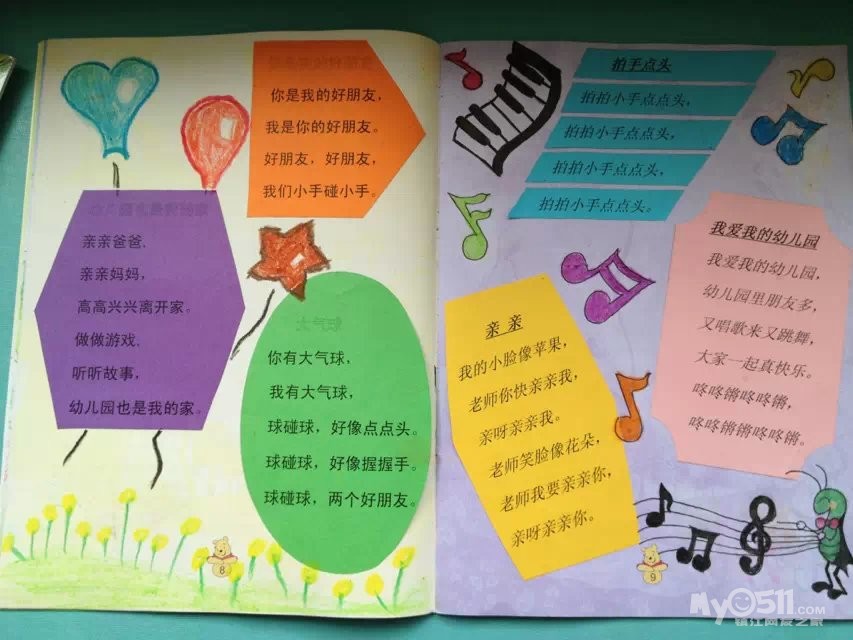 你是我的好朋友，
我是你的好朋友。
好朋友，好朋友，
我们小手碰小手。
亲亲爸爸、
亲亲妈妈，
高高兴兴离开家。
做做游戏、
听听故事，
幼儿园也是我的家。
大气球
你有大气球，
我有大气球，
球碰球，好像点点头。
球碰球，好像握握手。
球碰球，两个好朋友。
8
拍手点头
拍拍小手点点头，
拍拍小手点点头，
拍拍小手点点头，
拍拍小手点点头。
我爱我的幼儿园
我爱我的幼儿园，
幼儿园里朋友多，
又唱歌来又跳舞，
大家一起真快乐。
咚咚锵咚咚锵，
咚咚锵锵咚咚锵。
亲亲
我的小脸像苹果，
老师你快亲亲我，
亲呀亲亲我。
老师笑脸像花朵，
老师我要亲亲你，
亲呀亲亲你。
9
My0511.com
镇江网友之家